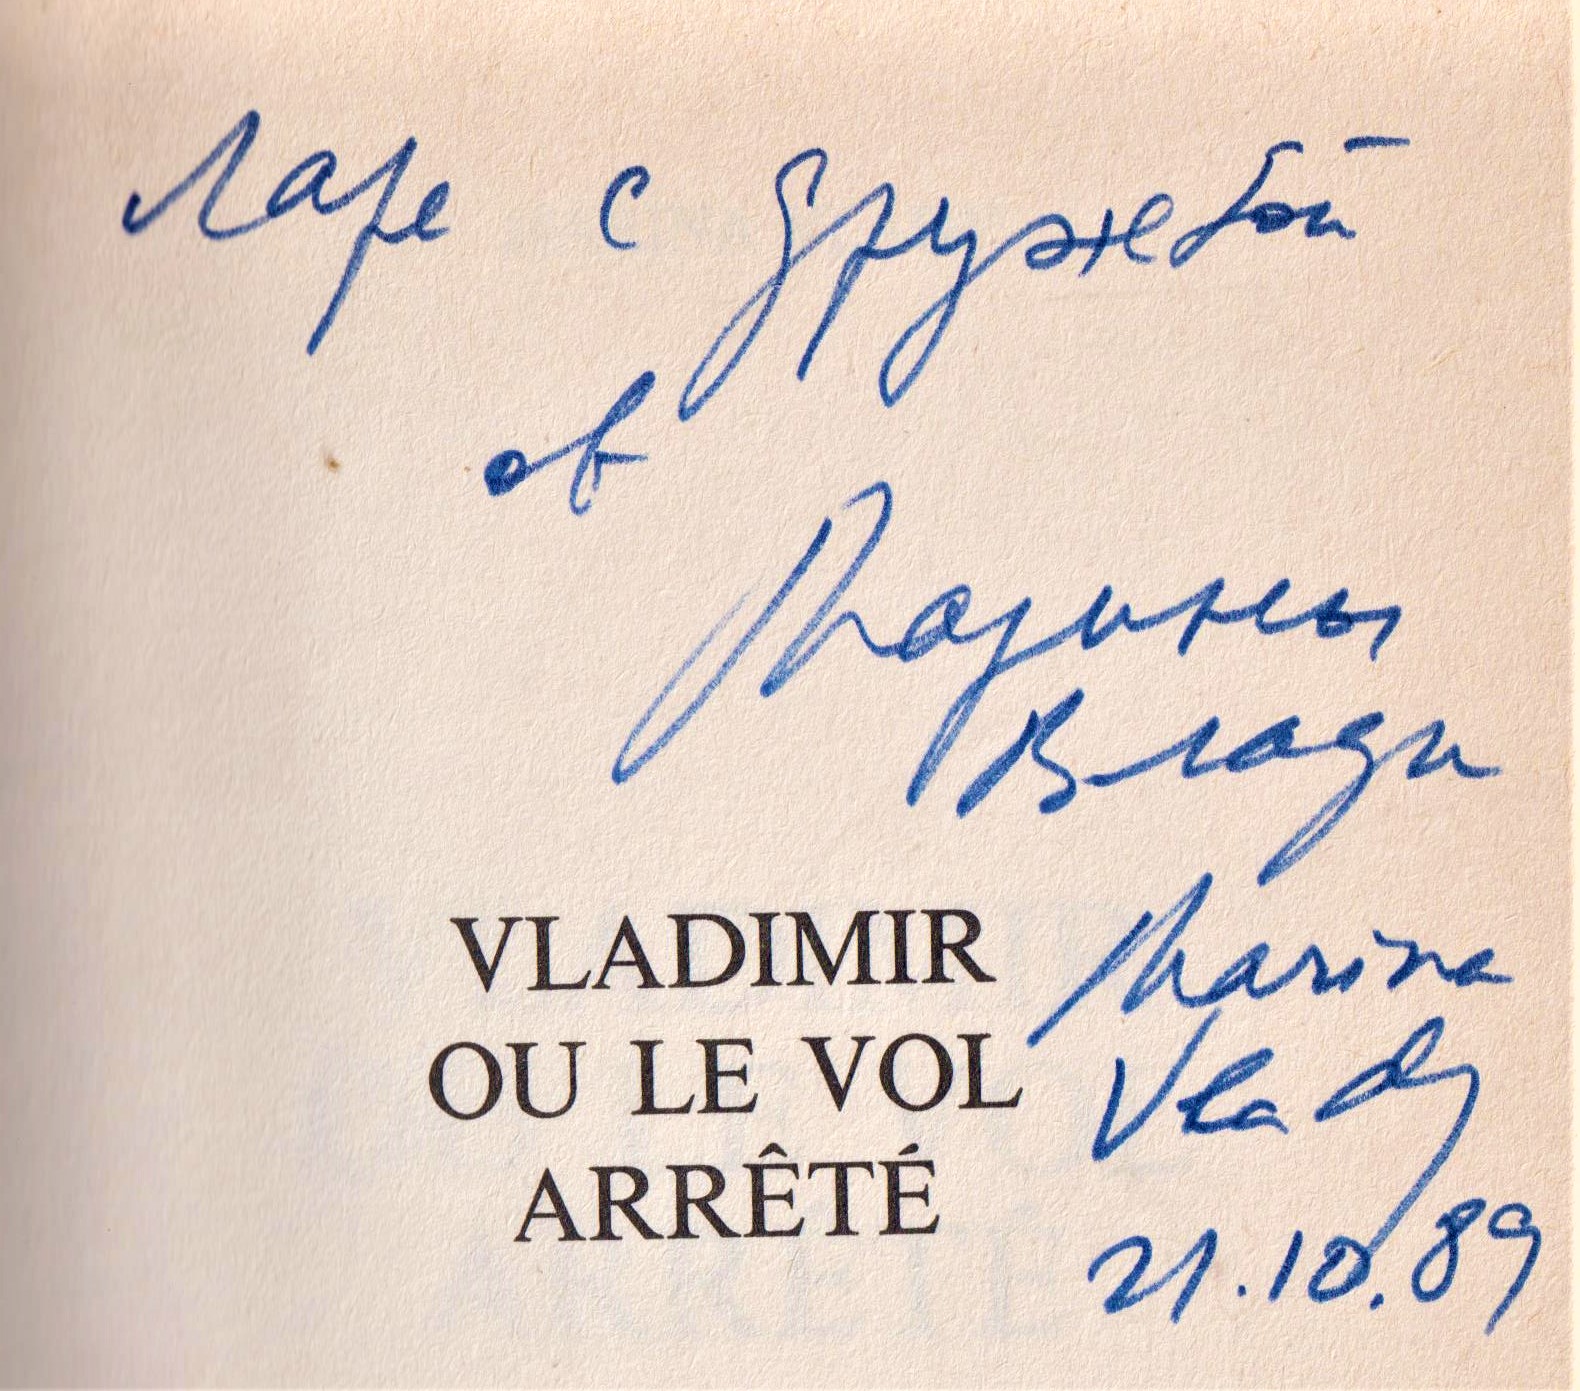 Ларе с дружбой
от
Марины
Влади
Marina
Vlady
21.10.89
VLADIMIR
OU LE VOL
ARRÊTÉ